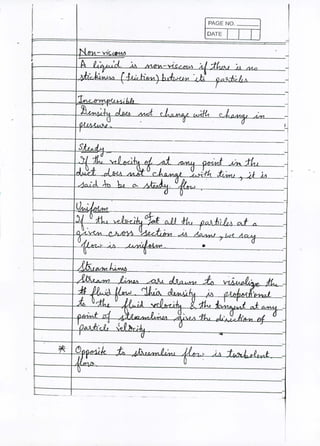 PAGE NO.
DATE
Non-viscous
A liquid is non-viscous if there is no
stickiness (friction) between its particles
Incompressible
Density does not change with change in
pressure.
Steady
If the velocity of at any point in the
duct does not change with time, it is
said to be a steady flow.
Uniform
If the velocity of all the particles at a
given cross section is same, we say
flow is uniform.
Streamlines
Stream lines are drawn to visualize the
fluid flow. Their density is proportional
to the fluid velocity & the tangent at any
point of streamlines gives the direction of
particle velocity
* Opposite to streamline flow is turbulent
flow.